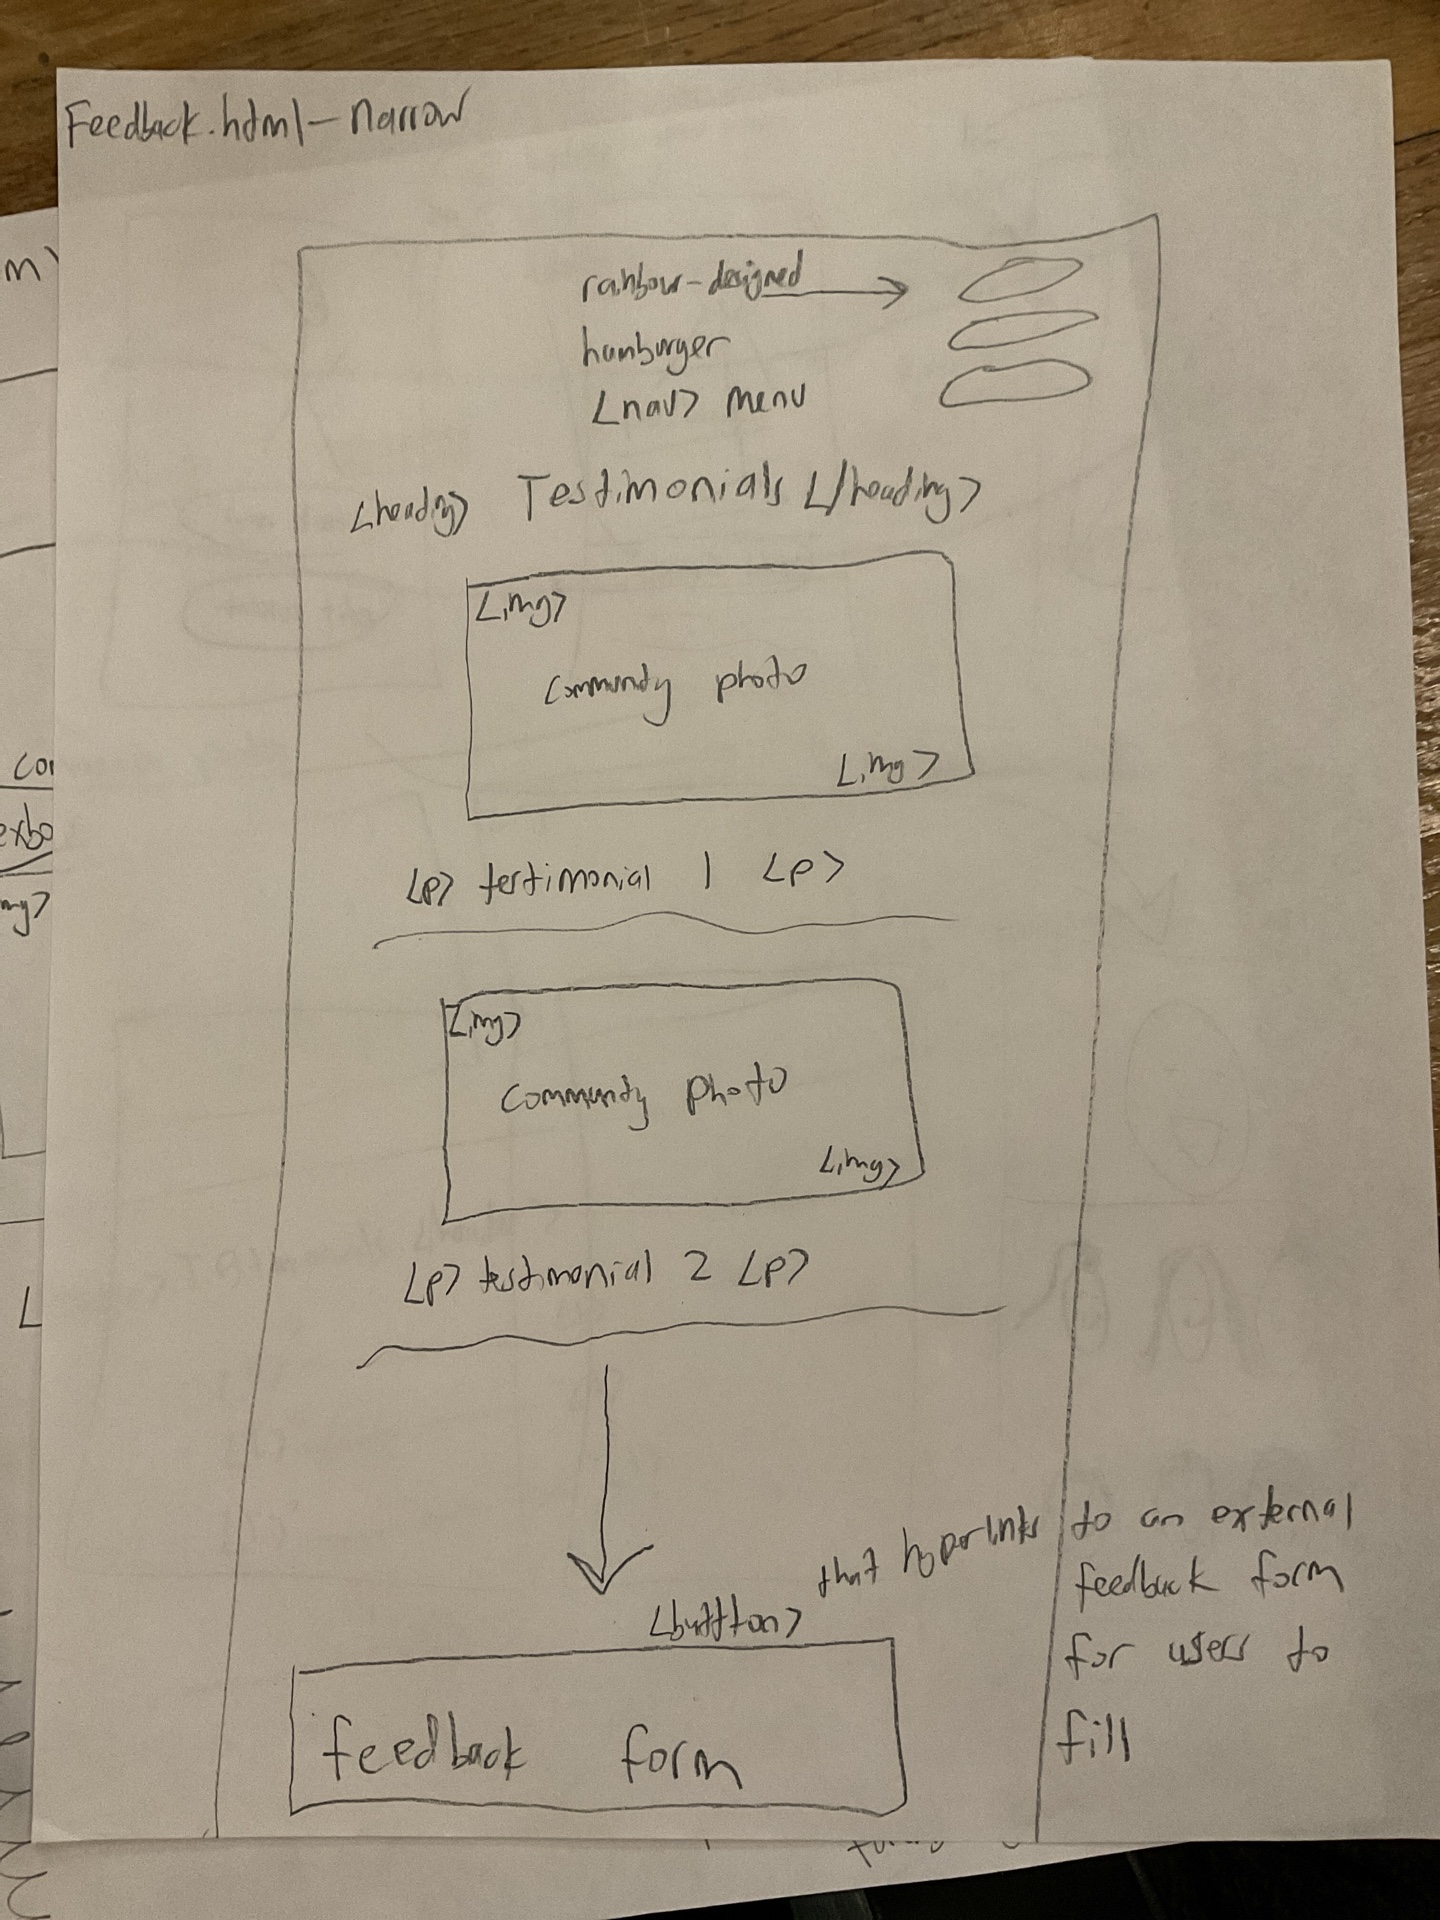 Feedback.html - narrow
rainbow-designed
hamburger
<nav> menu
<heading> Testimonials </heading>
<img>
community photo
<img>
<p> testimonial 1 <p>
<img>
community photo
<img>
<p> testimonial 2 <p>
<button> that hyperlinks to an external
feedback form
for users to
fill
feedback form